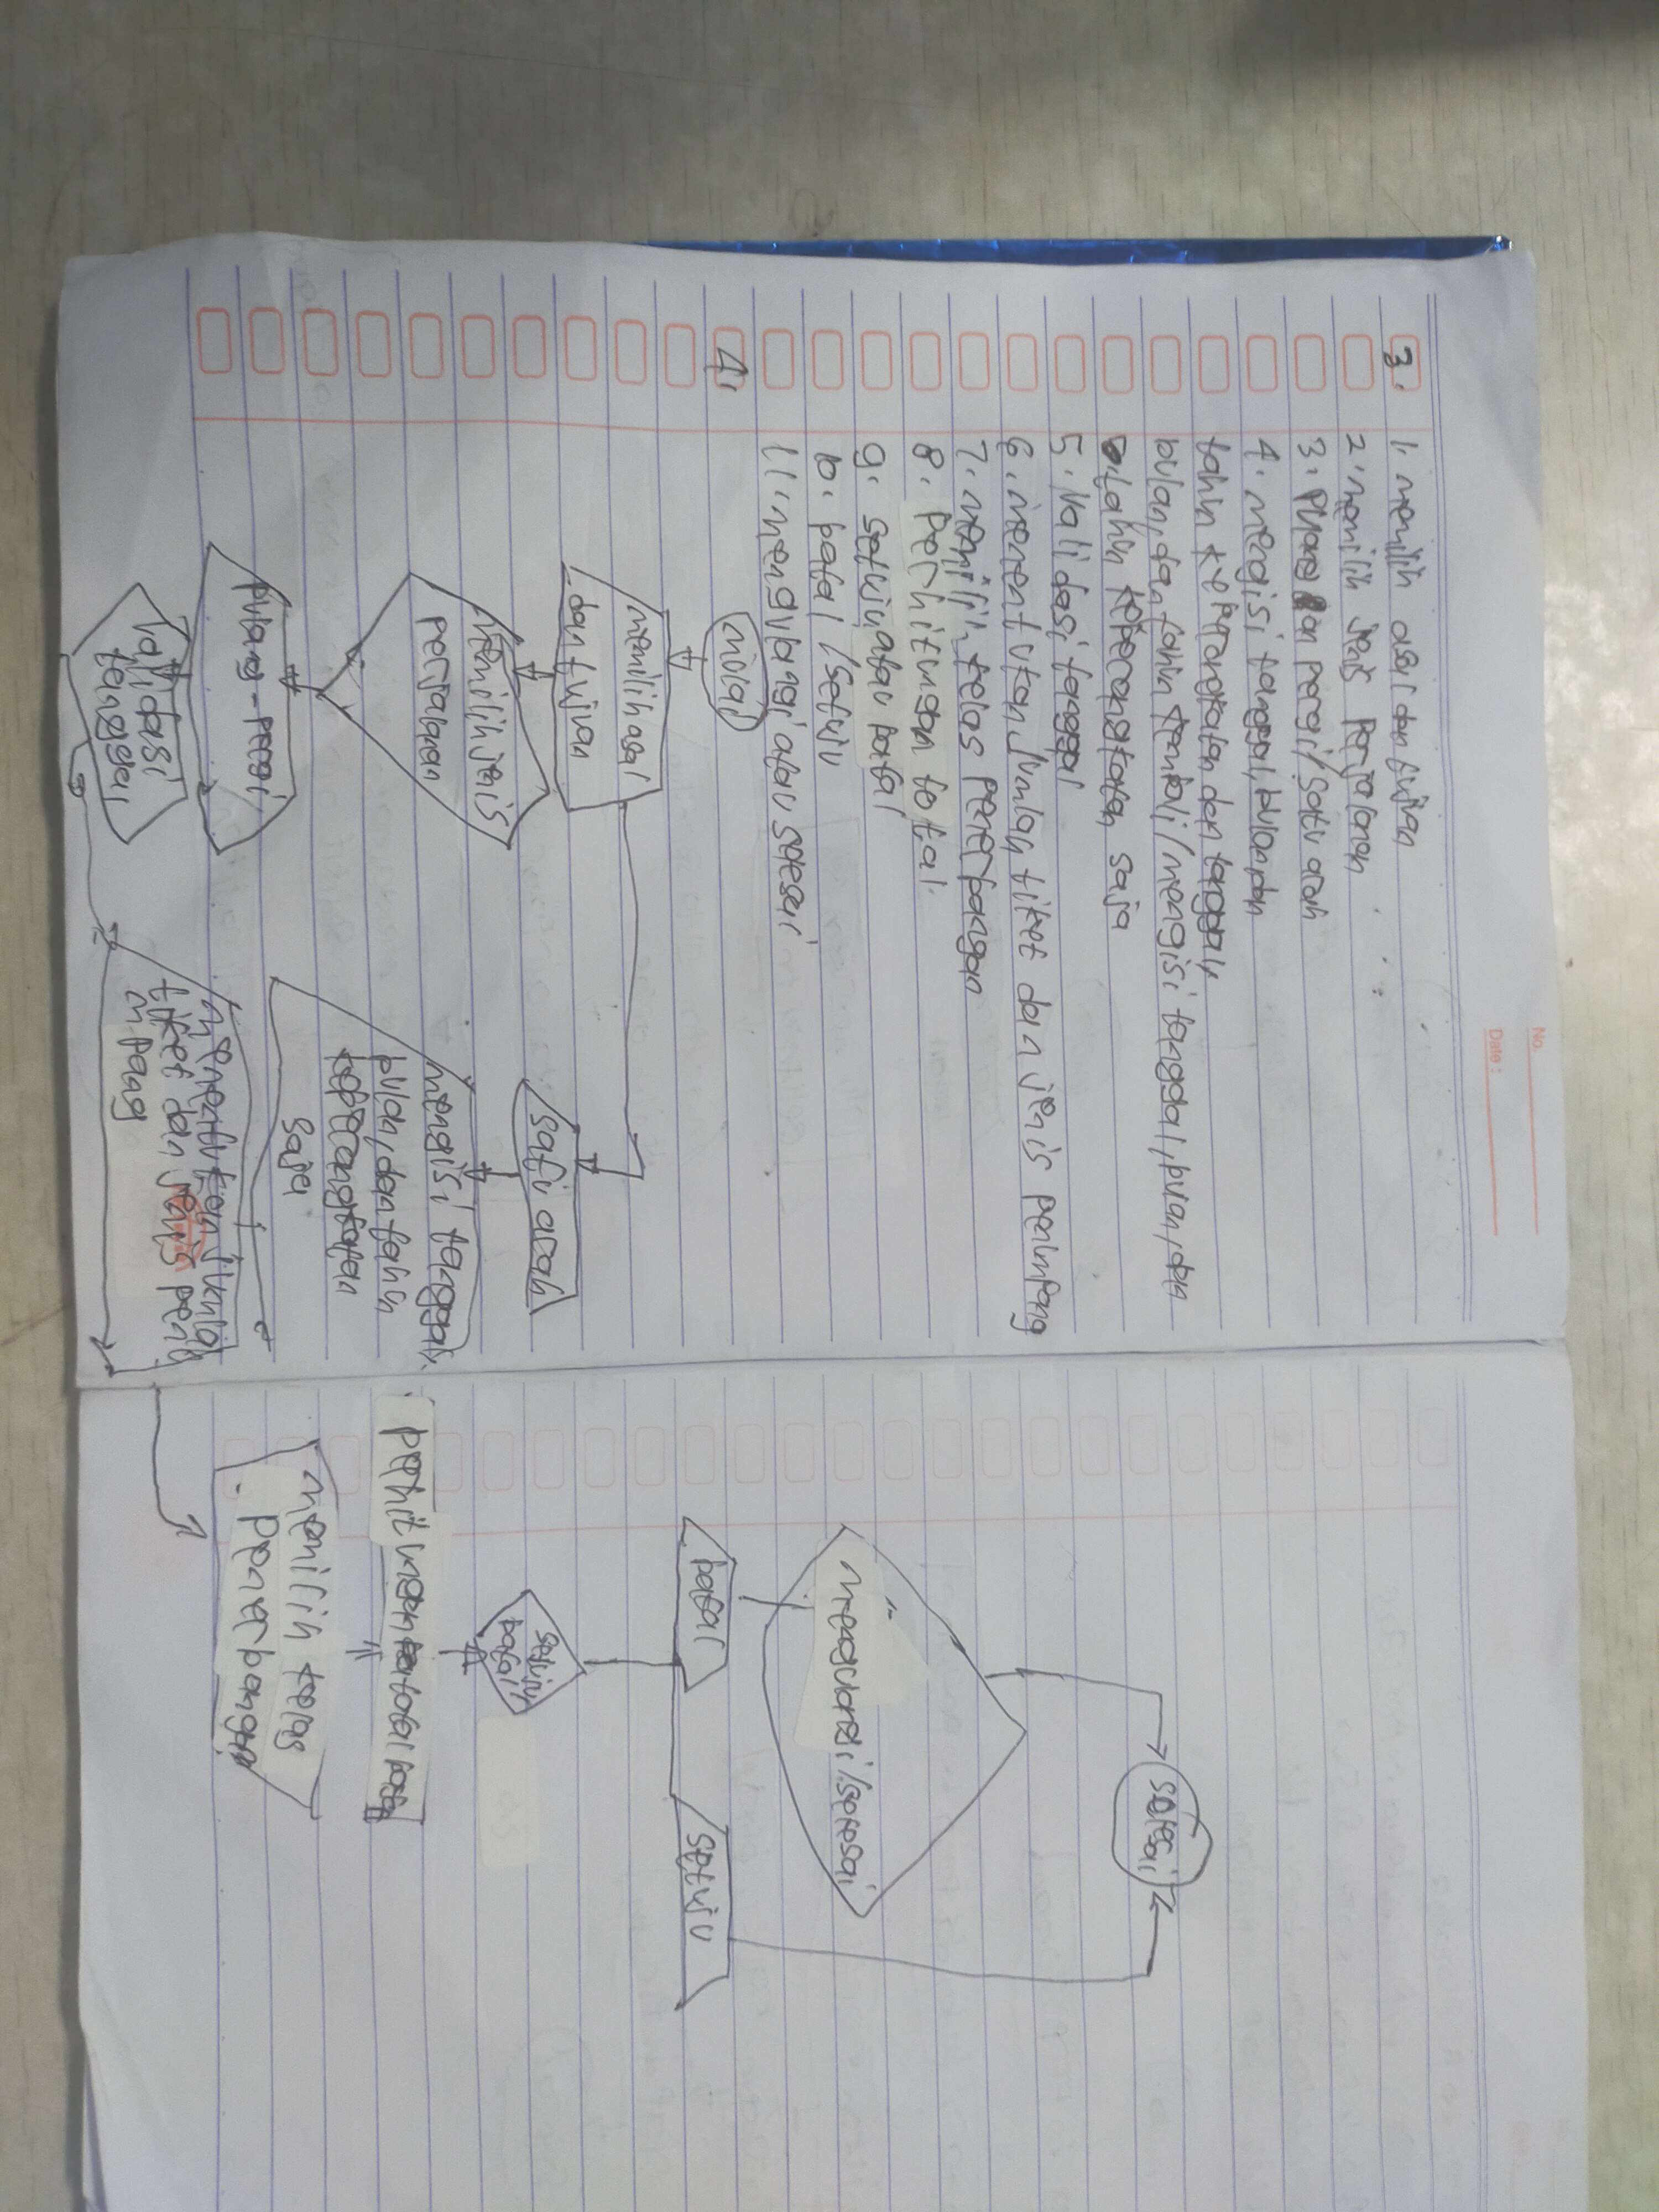 No.
Date :
3.
1. memilih asal dan tujuan
2. memilih jenis perjalanan
3. pulang dan pergi/satu arah
4. mengisi tanggal, bulan, dan
tahun keberangkatan dan tanggal,
bulan, dan tahun kembali/mengisi tanggal, bulan, dan
tahun keberangkatan saja
5. Validasi tanggal
6. menentukan jumlah tiket dan jenis penumpang
7. memilih kelas penerbangan
8. perhitungan total.
9. setuju atau batal
10. batal/setuju
11. mengulangi atau selesai
4.
mulai
memilih asal
dan tujuan
memilih jenis
perjalanan
pulang-pergi
Validasi
tanggal
satu arah
mengisi tanggal,
bulan, dan tahun
keberangkatan
saja
menentukan jumlah
tiket dan jenis penu
mpang
memilih kelas
penerbangan
perhitungan total
setuju/
batal
batal
setuju
mengulangi/selesai
selesai